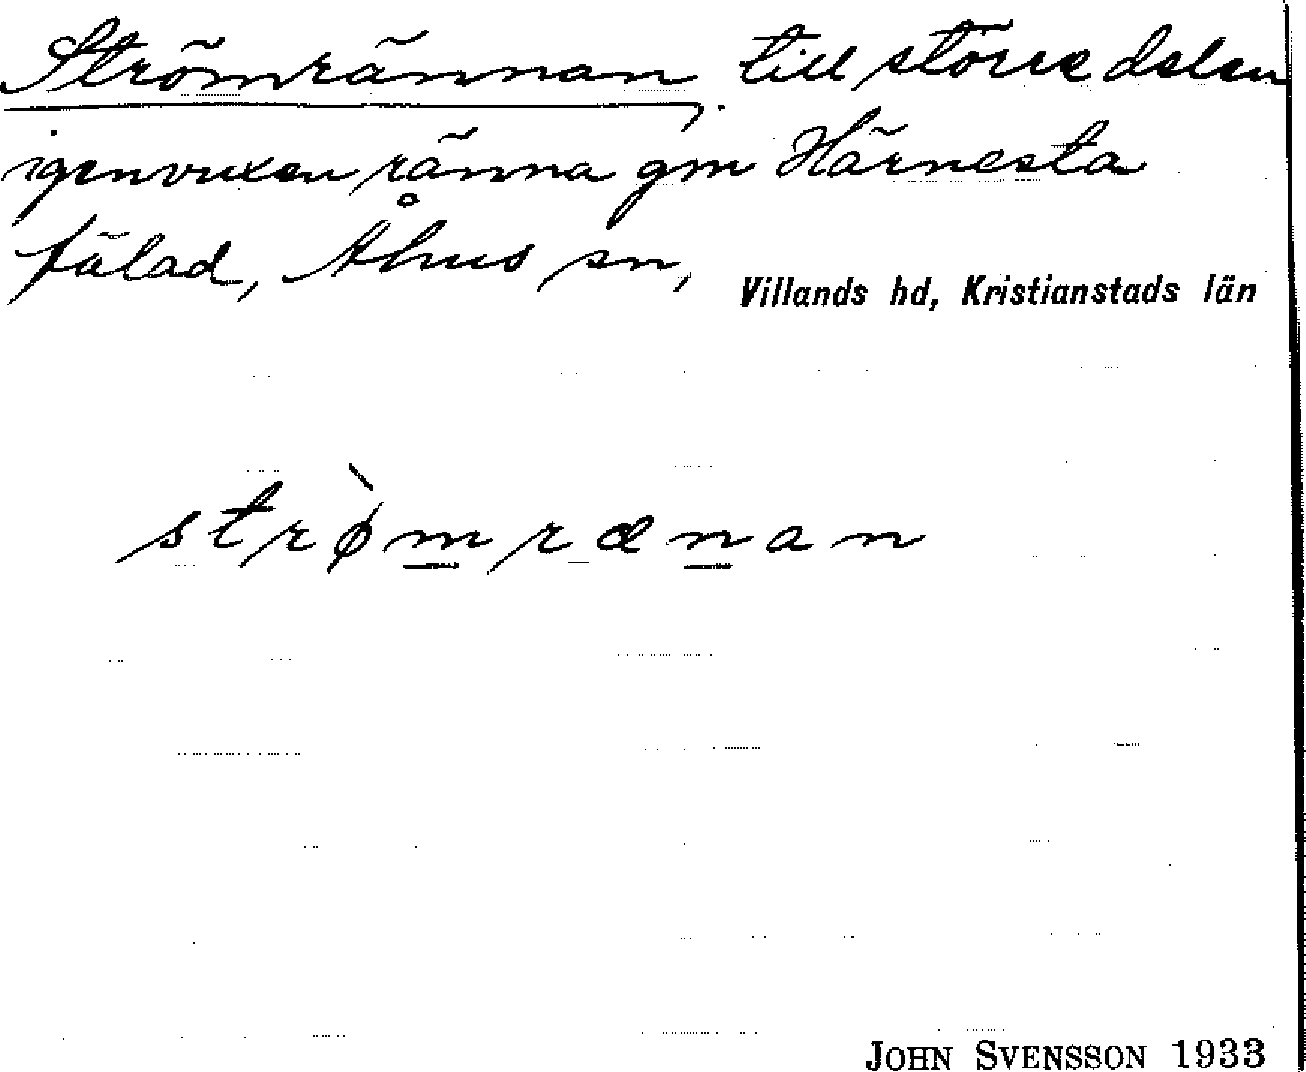 Strömrännan, till större delen
igenvuxen ränna gm Härnesta
fälad, Åhus sn, Villands hd, Kristianstads län
strø̀mrænan
JOHN SVENSSON 1933